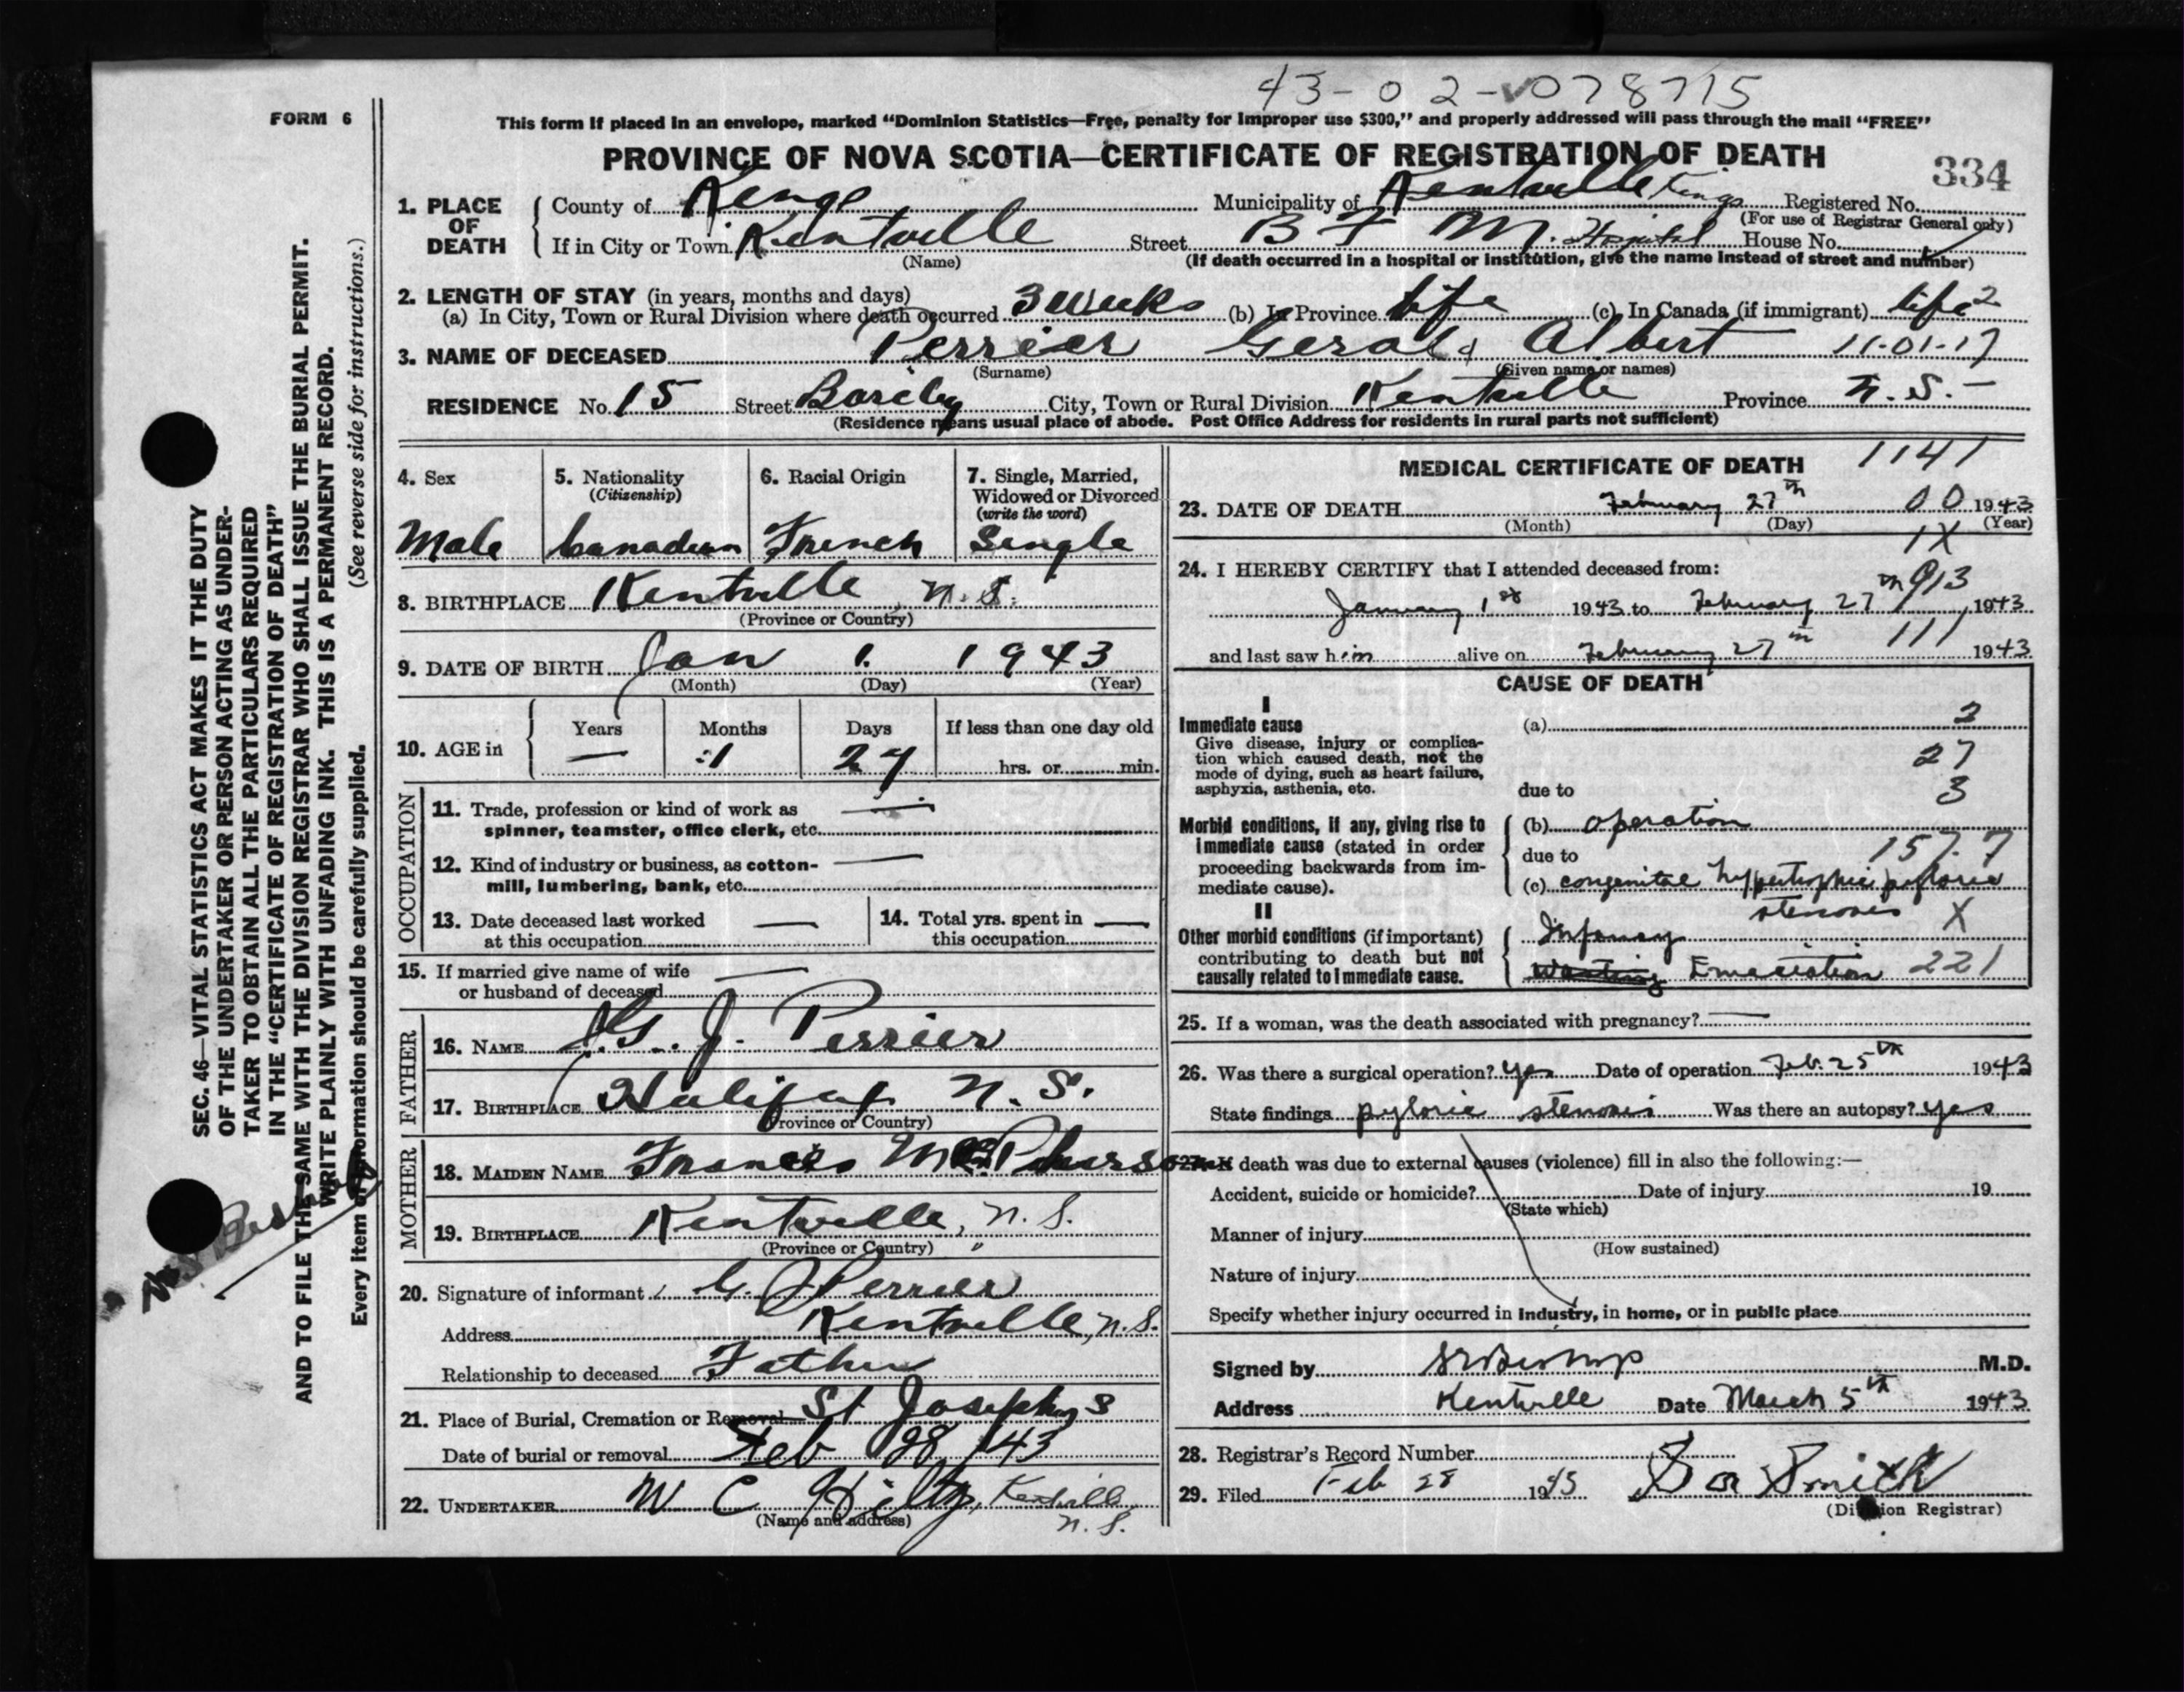 43-02-078715
FORM 6
This form if placed in an envelope, marked "Dominion Statistics—Free, penalty for improper use $300," and properly addressed will pass through the mail "FREE"
PROVINCE OF NOVA SCOTIA—CERTIFICATE OF REGISTRATION OF DEATH
334
1. PLACE OF DEATH
County of Kings Municipality of Kentville Kings Registered No.
(For use of Registrar General only)
If in City or Town Kentville Street B F M. Hospital House No.
(Name) (If death occurred in a hospital or institution, give the name instead of street and number)
2. LENGTH OF STAY (in years, months and days)
(a) In City, Town or Rural Division where death occurred 3 weeks (b) In Province life (c) In Canada (if immigrant) life 2
3. NAME OF DECEASED Perrier Gerald Albert 11-01-17
(Surname) (Given name or names)
RESIDENCE No. 15 Street City, Town or Rural Division Kentville Province N.S. –
(Residence means usual place of abode. Post Office Address for residents in rural parts not sufficient)
4. Sex 5. Nationality (Citizenship) 6. Racial Origin 7. Single, Married, Widowed or Divorced (write the word)
Male Canadian French Single
8. BIRTHPLACE Kentville, N.S.
(Province or Country)
9. DATE OF BIRTH Jan 1. 1943
(Month) (Day) (Year)
10. AGE in Years Months Days If less than one day old
— 1 27 hrs. or min.
OCCUPATION
11. Trade, profession or kind of work as —
spinner, teamster, office clerk, etc.
12. Kind of industry or business, as cotton- —
mill, lumbering, bank, etc.
13. Date deceased last worked — 14. Total yrs. spent in —
at this occupation this occupation
15. If married give name of wife —
or husband of deceased
FATHER
16. NAME J. G. J. Perrier
17. BIRTHPLACE Halifax N.S.
(Province or Country)
MOTHER
18. MAIDEN NAME Frances McPherson
19. BIRTHPLACE Kentville, N.S.
(Province or Country)
20. Signature of informant G. J Perrier
Address Kentville, N.S.
Relationship to deceased Father
21. Place of Burial, Cremation or Removal St Josephs
Date of burial or removal Feb 28/43
22. UNDERTAKER W C Hiltz, Kentville
(Name and address) N.S.
MEDICAL CERTIFICATE OF DEATH 1141
23. DATE OF DEATH February 27th 00 1943
(Month) (Day) (Year)
1X
24. I HEREBY CERTIFY that I attended deceased from:
913
January 1st 1943 to February 27th, 1943
111
and last saw him alive on February 27th 1943
CAUSE OF DEATH
I
Immediate cause (a) 2
Give disease, injury or complication which caused death, not the mode of dying, such as heart failure, asphyxia, asthenia, etc.
27
due to 3
Morbid conditions, if any, giving rise to immediate cause (stated in order proceeding backwards from immediate cause).
(b) operation
due to 157.7
(c) congenital hypertrophic pyloric
stenosis X
II
Other morbid conditions (if important) contributing to death but not causally related to immediate cause.
Infancy
Wasting Emaciation 221
25. If a woman, was the death associated with pregnancy? —
26. Was there a surgical operation? Yes Date of operation Feb. 25th 1943
State findings pyloric stenosis Was there an autopsy? Yes
27. If death was due to external causes (violence) fill in also the following:—
Accident, suicide or homicide? Date of injury 19
(State which)
Manner of injury
(How sustained)
Nature of injury
Specify whether injury occurred in industry, in home, or in public place
Signed by M.D.
Address Kentville Date March 5th 1943
28. Registrar's Record Number
29. Filed Feb 28 1943 Smith
(Division Registrar)
SEC. 46—VITAL STATISTICS ACT MAKES IT THE DUTY
OF THE UNDERTAKER OR PERSON ACTING AS UNDER-
TAKER TO OBTAIN ALL THE PARTICULARS REQUIRED
IN THE "CERTIFICATE OF REGISTRATION OF DEATH"
AND TO FILE THE SAME WITH THE DIVISION REGISTRAR WHO SHALL ISSUE THE BURIAL PERMIT.
WRITE PLAINLY WITH UNFADING INK. THIS IS A PERMANENT RECORD.
Every item of information should be carefully supplied. (See reverse side for instructions.)